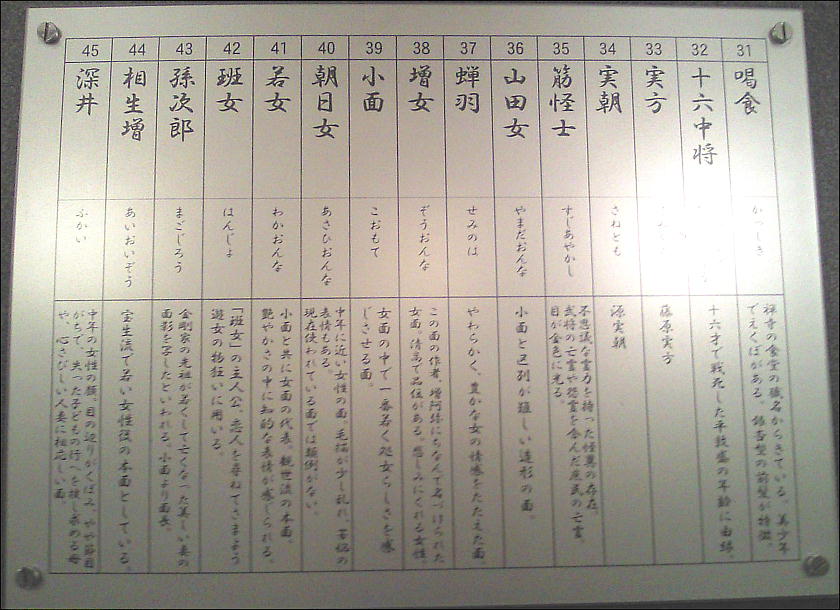 31
喝食
かっしき
禅寺の食堂の職名からきている。美少年
でえくぼがある。銀杏型の前髪が特徴。
32
十六中将
十六才で戦死した平敦盛の年齢に由縁。
33
実方
藤原実方
34
実朝
さねとも
源実朝
35
筋怪士
すじあやかし
不思議な霊力を持った怪異の存在。
武将の亡霊や怨霊を含んだ庶民の亡霊。
目が金色に光る。
36
山田女
やまだおんな
小面と区別が難しい造形の面。
37
蝉羽
せみのは
やわらかく、豊かな女の情感をたたえた面。
38
増女
ぞうおんな
この面の作者、増阿弥にちなんで名づけられた
女面。清高で品位がある。悲しみにくれる女性。
39
小面
こおもて
女面の中で一番若く処女らしさを感
じさせる面。
40
朝日女
あさひおんな
中年に近い女性の面。毛描が少し乱れ、苦悩の
表情もある。
現在使われている面では類例がない。
41
若女
わかおんな
小面と共に女面の代表、観世流の本面。
艶やかさの中に知的な表情が感じられる。
42
班女
はんじょ
「班女」の主人公。恋人を尋ねてさまよう
遊女の物狂いに用いる。
43
孫次郎
まごじろう
金剛家の先祖が若くして亡くなった美しい妻の
面影を写したといわれる。小面より面長。
44
相生増
あいおいぞう
宝生流で若い女性役の本面としている。
45
深井
ふかい
中年の女性の顔。目の辺りがくぼみ、やや節目
がちで、失った子どもの行へを捜し求める母
や、心さびしい人妻に相応しい面。